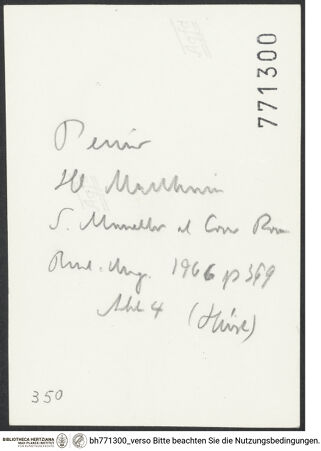 771300
Perino
S. Marcello al Corso Rom
Burl. Mag. 1966 p 369
Abb 4 (Hirst)
350
BIBLIOTHECA HERTZIANA
MAX-PLANCK-INSTITUT
bh771300_verso Bitte beachten Sie die Nutzungsbedingungen.